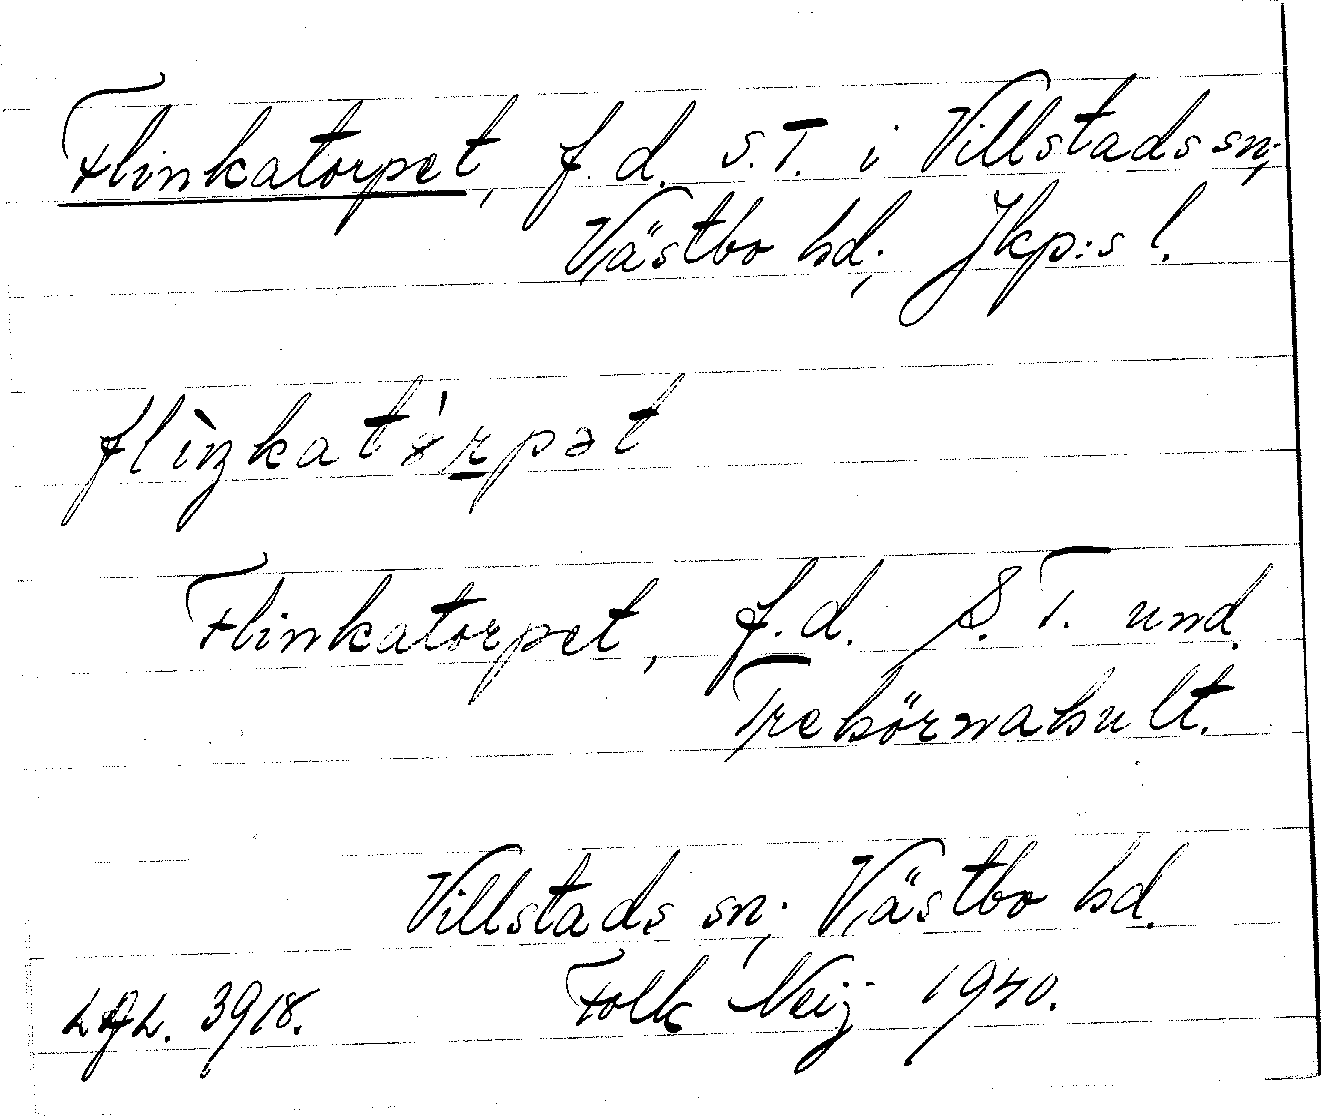 Flinkatorpet, f.d. S.T. i Villstads sn;
Västbo hd; Jkp:s l.
flìŋkatǻrpət
Flinkatorpet, f.d. S.T. und.
Trehörnahult.
Villstads sn; Västbo hd.
3918. Folk Neij 1940.